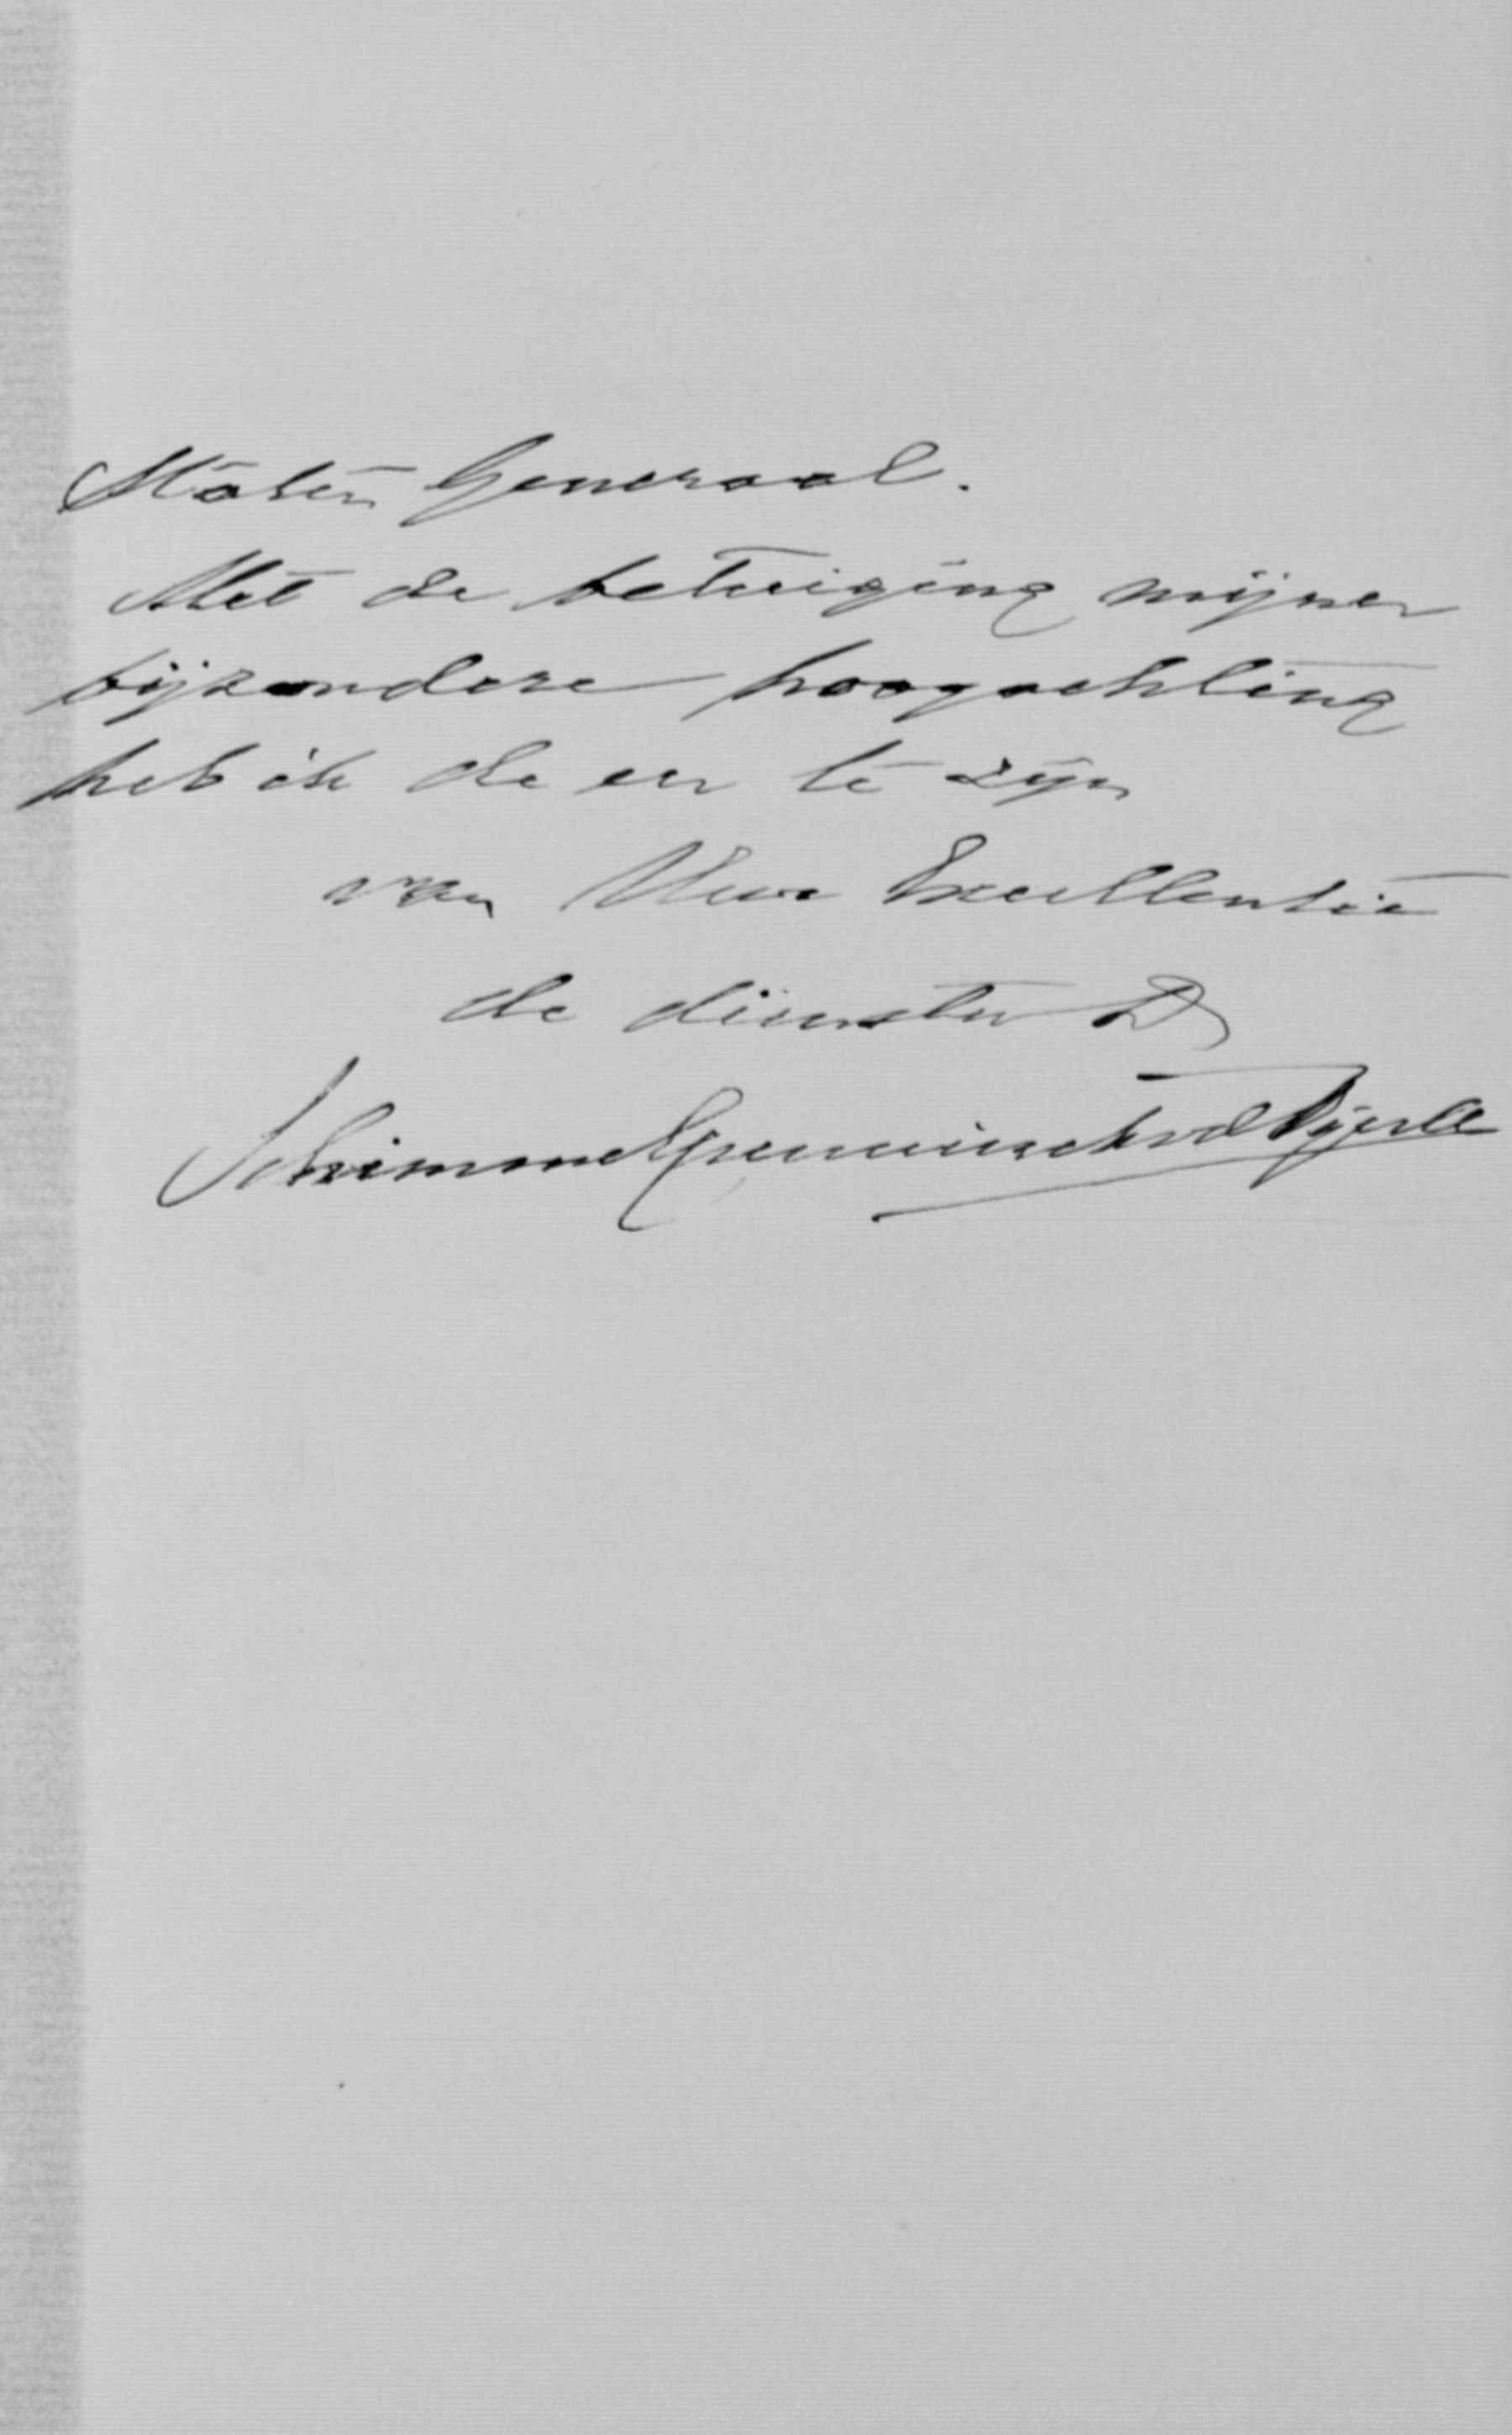 Staten Generaal.
Met de betuiging mijner
bijzondere hoogachting
heb ik de eer te zijn
van Uwe Excellentie
de dienstw D
Schimmelpenninck vd Oije